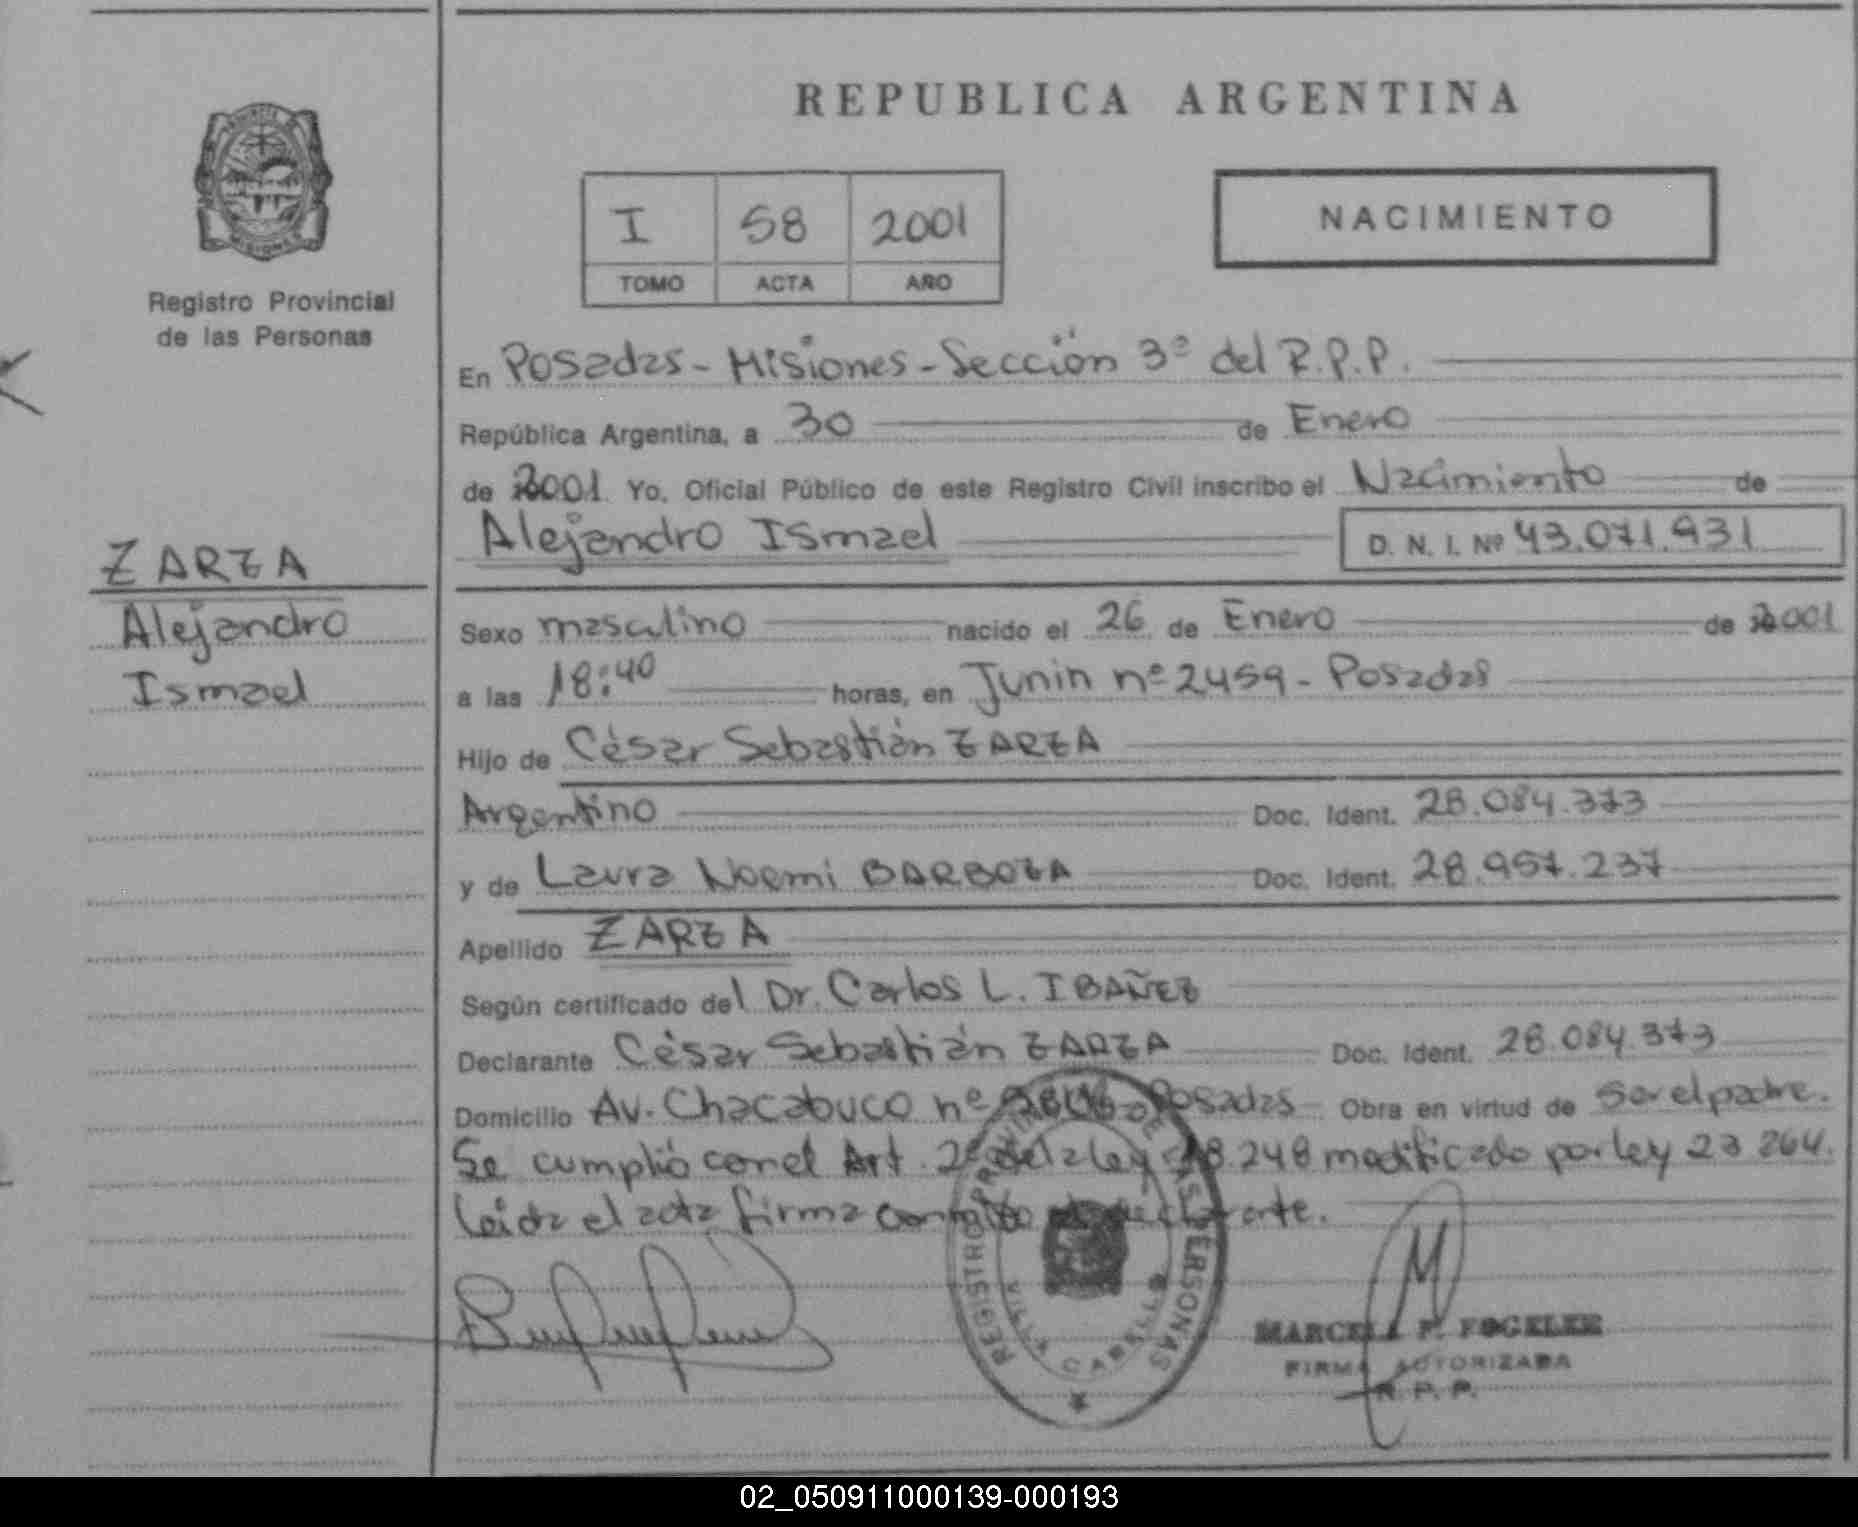 REPUBLICA ARGENTINA
I 58 2001
TOMO ACTA AÑO
NACIMIENTO
MISIONES
Registro Provincial
de las Personas
En Posadas - Misiones - Sección 3ª del R.P.P.
República Argentina, a 30 de Enero
de 2001 Yo, Oficial Público de este Registro Civil inscribo el Nacimiento de
Alejandro Ismael D. N. I. Nº 43.071.931
ZARZA
Alejandro
Ismael
Sexo masculino nacido el 26 de Enero de 2001
a las 18:40 horas, en Junin nº 2459 - Posadas
Hijo de César Sebastián ZARZA
Argentino Doc. Ident. 28.084.373
y de Laura Noemi BARBOZA Doc. Ident. 28.957.237
Apellido ZARZA
Según certificado del Dr. Carlos L. IBAÑEZ
Declarante César Sebastián ZARZA Doc. Ident. 28.084.373
Domicilio Av. Chacabuco nº Posadas Obra en virtud de ser el padre.
Se cumplió con el Art. 2º de la ley 18.248 modificado por ley 23264.
Leída el acta firma conmigo el declarante.
REGISTRO PROVINCIAL DE LAS PERSONAS
VILLA CABELLO
MARCELA F. FOGELER
FIRMA AUTORIZADA
R. P. P.
02_050911000139-000193